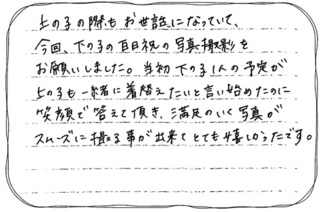 上の子の際もお世話になっていて、
今回、下の子の百日祝の写真撮影を
お願いしました。当初下の子1人の予定が
上の子も一緒に着替えたいと言い始めたのに
笑顔で答えて頂き、満足のいく写真が
スムーズに撮る事が出来てとても嬉しかったです。